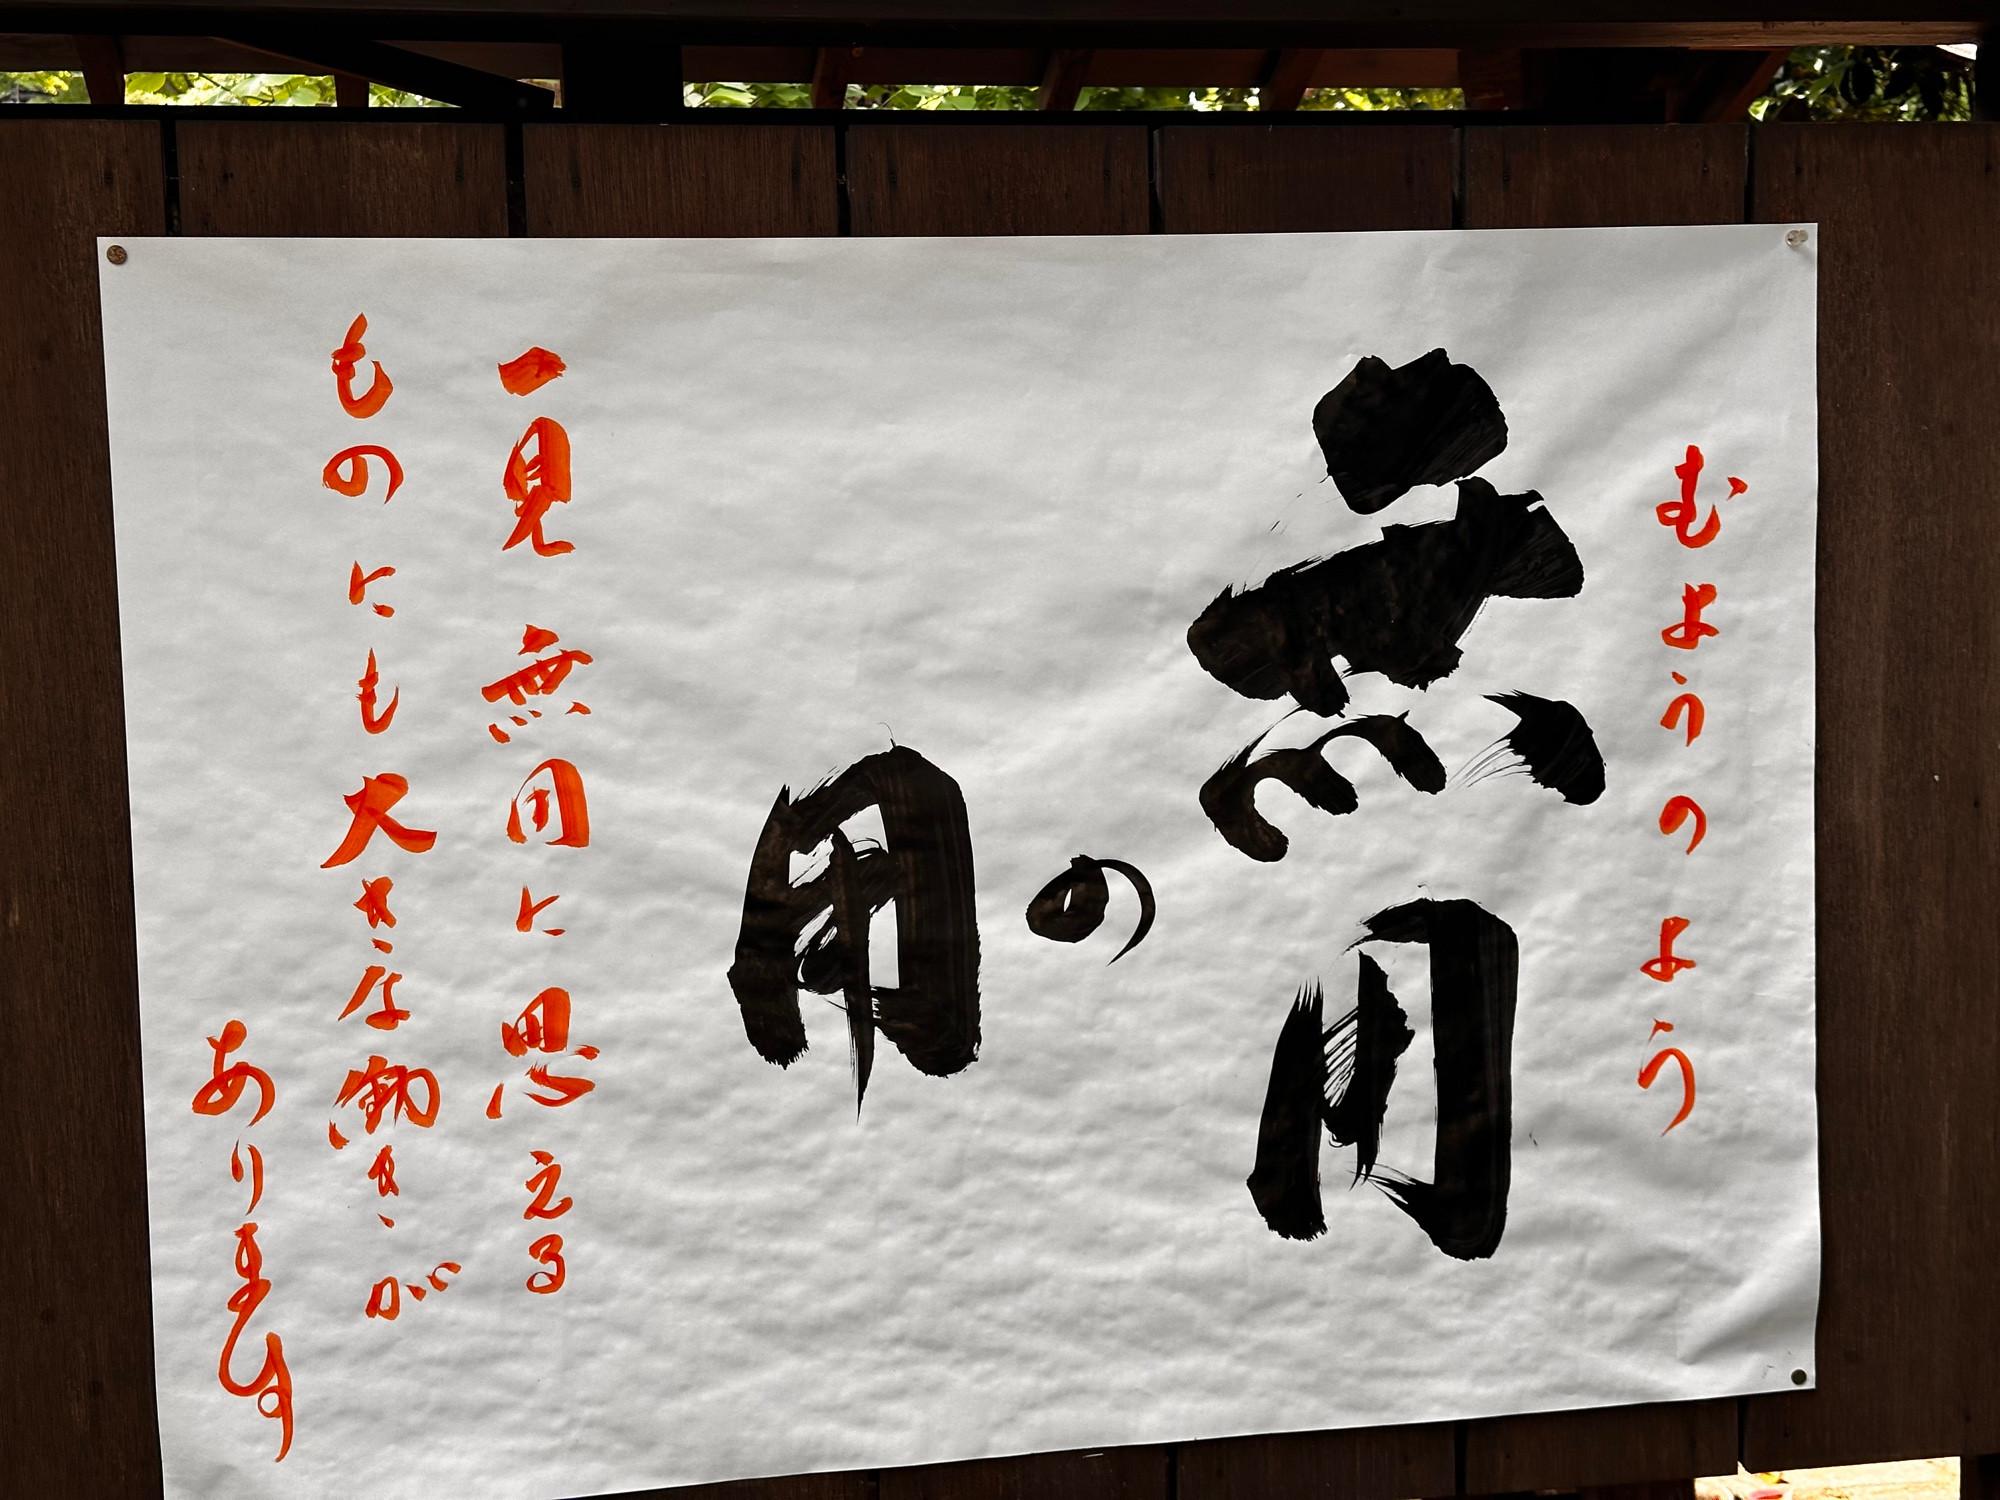 むようのよう
無用
の
用
一見無用に思える
ものにも大きな働きが
あります